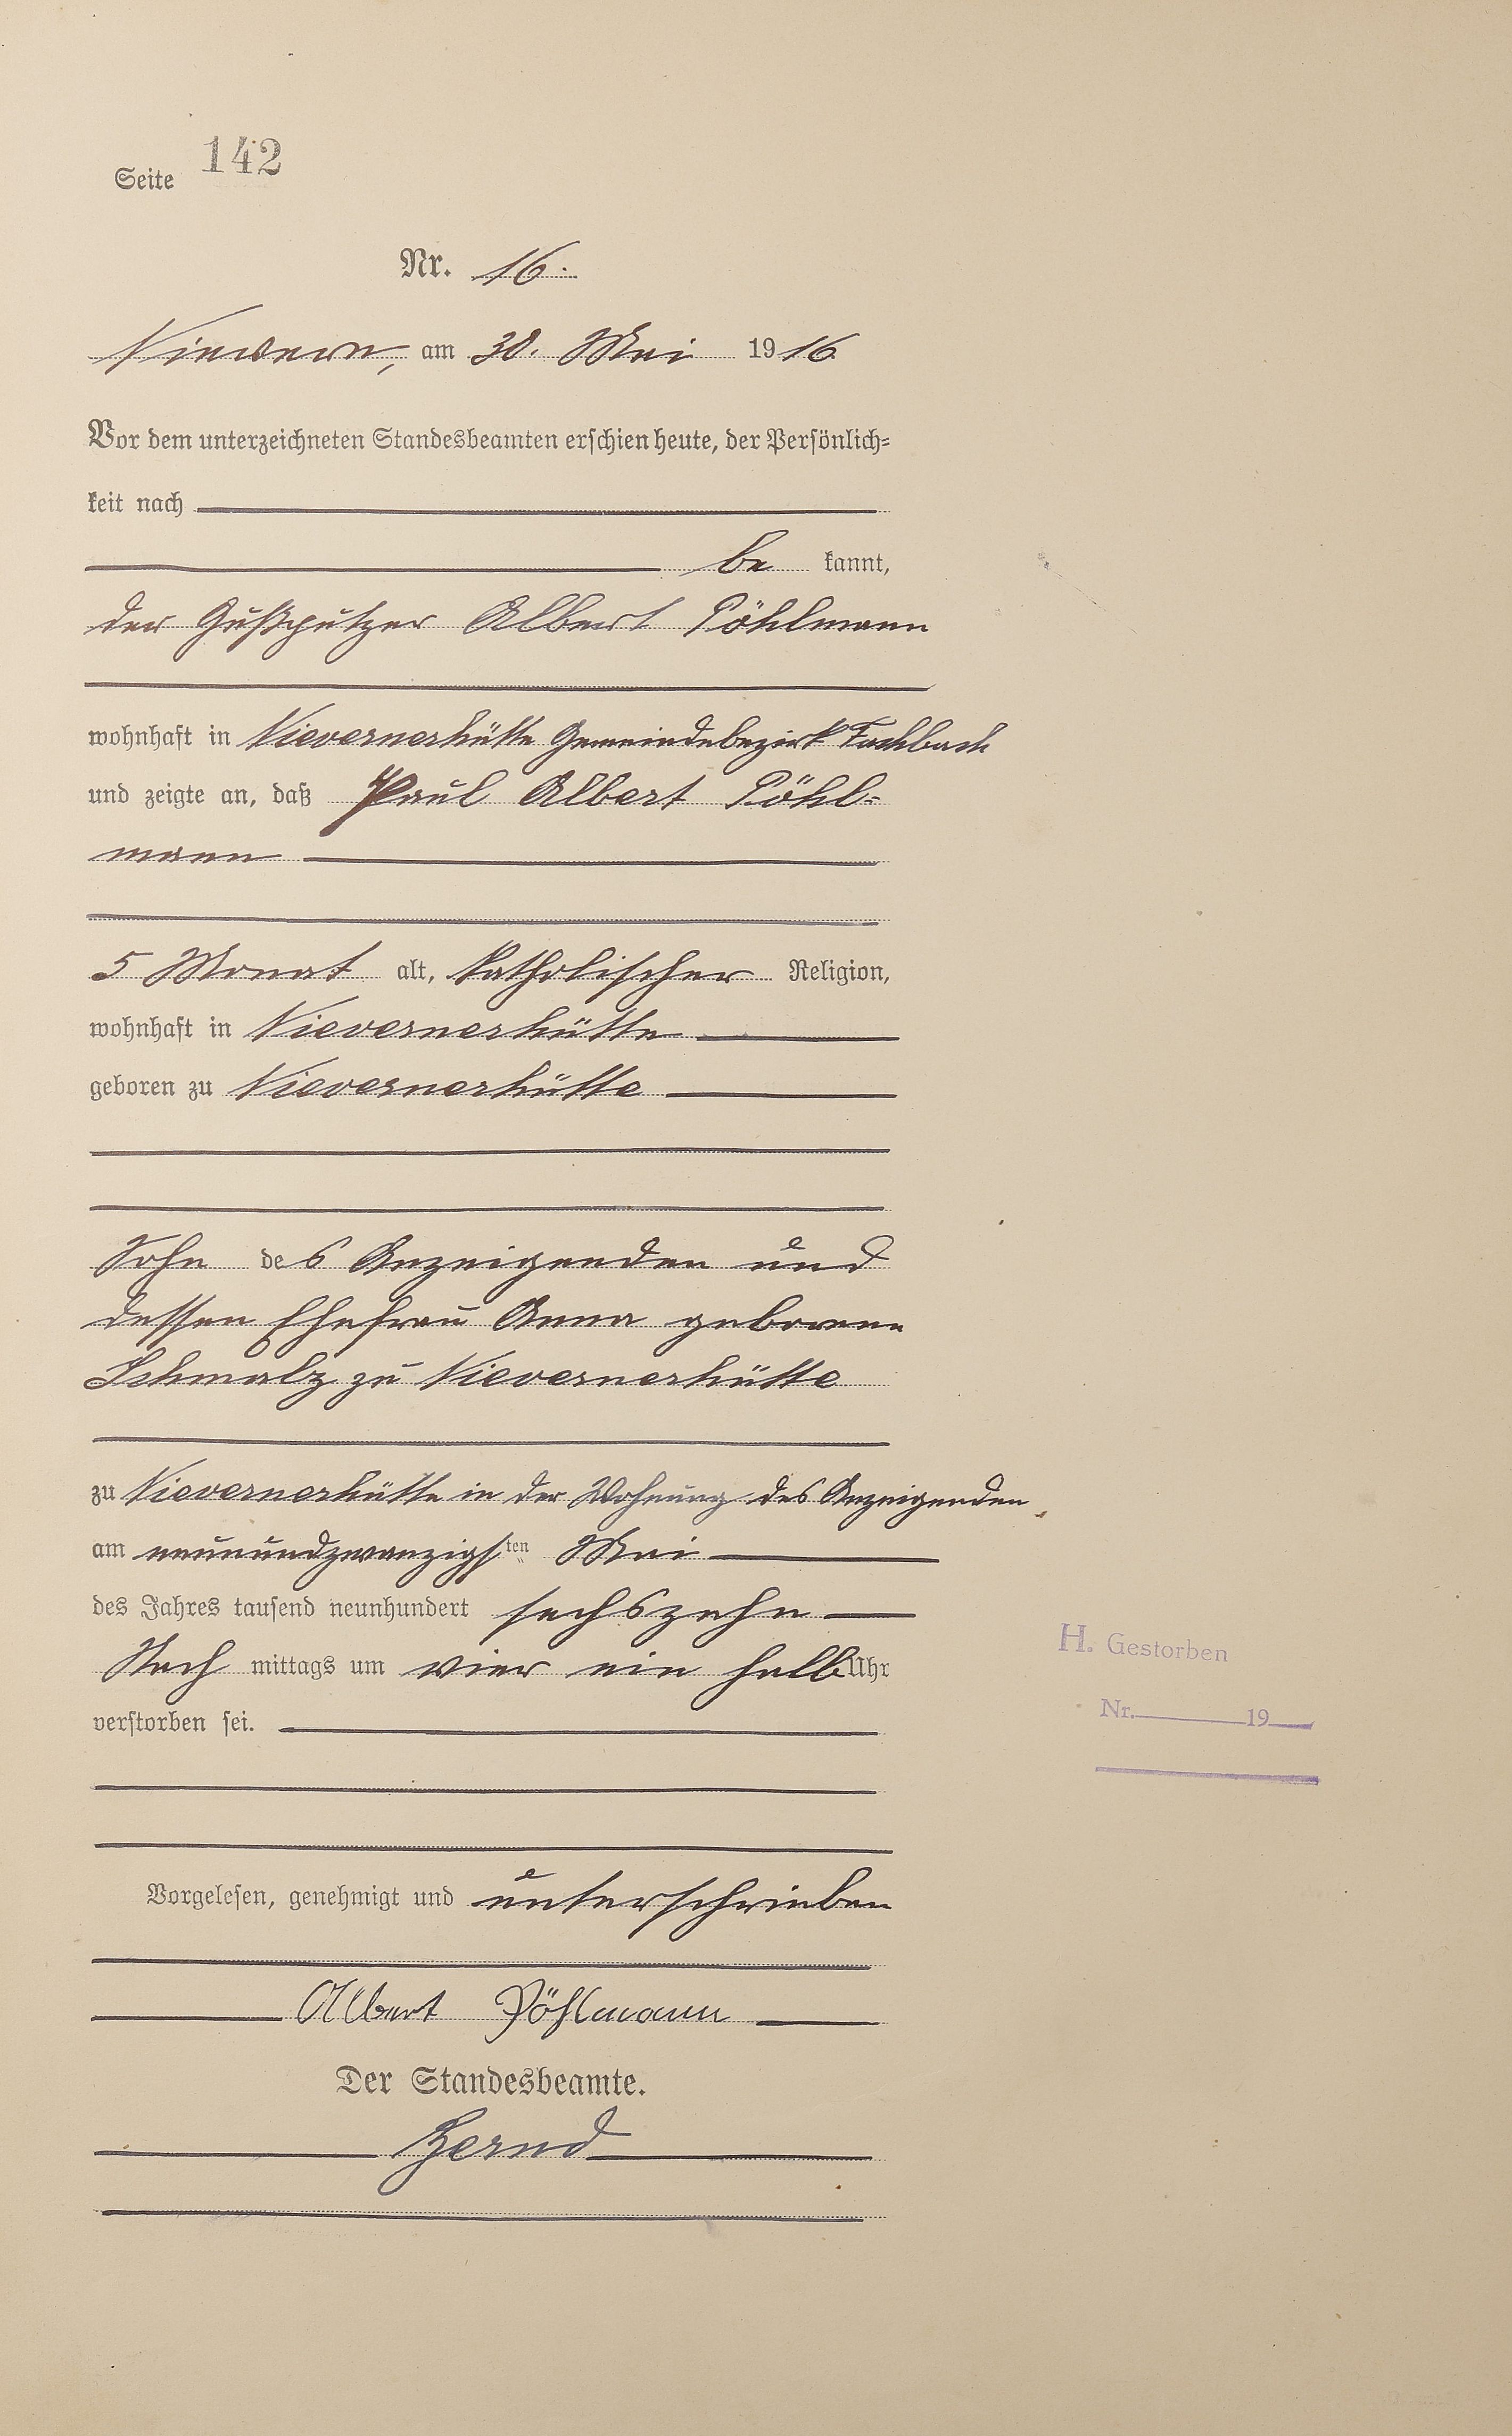 Seite 142
Nr. 16.
Nievern, am 30. Mai 1916
Vor dem unterzeichneten Standesbeamten erschien heute, der Persönlich-
keit nach
be kannt,
der Gußputzer Albert Pöhlmann
wohnhaft in Nievernerhütte Gemeindebezirk Fachbach
und zeigte an, daß Paul Albert Pöhl-
mann
5 Monat alt, katholischer Religion,
wohnhaft in Nievernerhütte
geboren zu Nievernerhütte
Sohn des Anzeigenden und
dessen Ehefrau Anna geborene
Schmalz zu Nievernerhütte
zu Nievernerhütte in der Wohnung des Anzeigenden
am neunundzwanzigsten Mai
des Jahres tausend neunhundert sechszehn
Nach mittags um vier ein halb Uhr
verstorben sei.
H. Gestorben
Nr. 19
Vorgelesen, genehmigt und unterschrieben
Albert Pöhlmann
Der Standesbeamte.